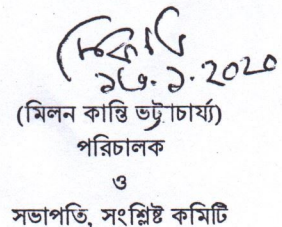 ১৬.১.2020
(মিলন কান্তি ভট্টাচার্য্য)
পরিচালক
ও
সভাপতি, সংশ্লিষ্ট কমিটি